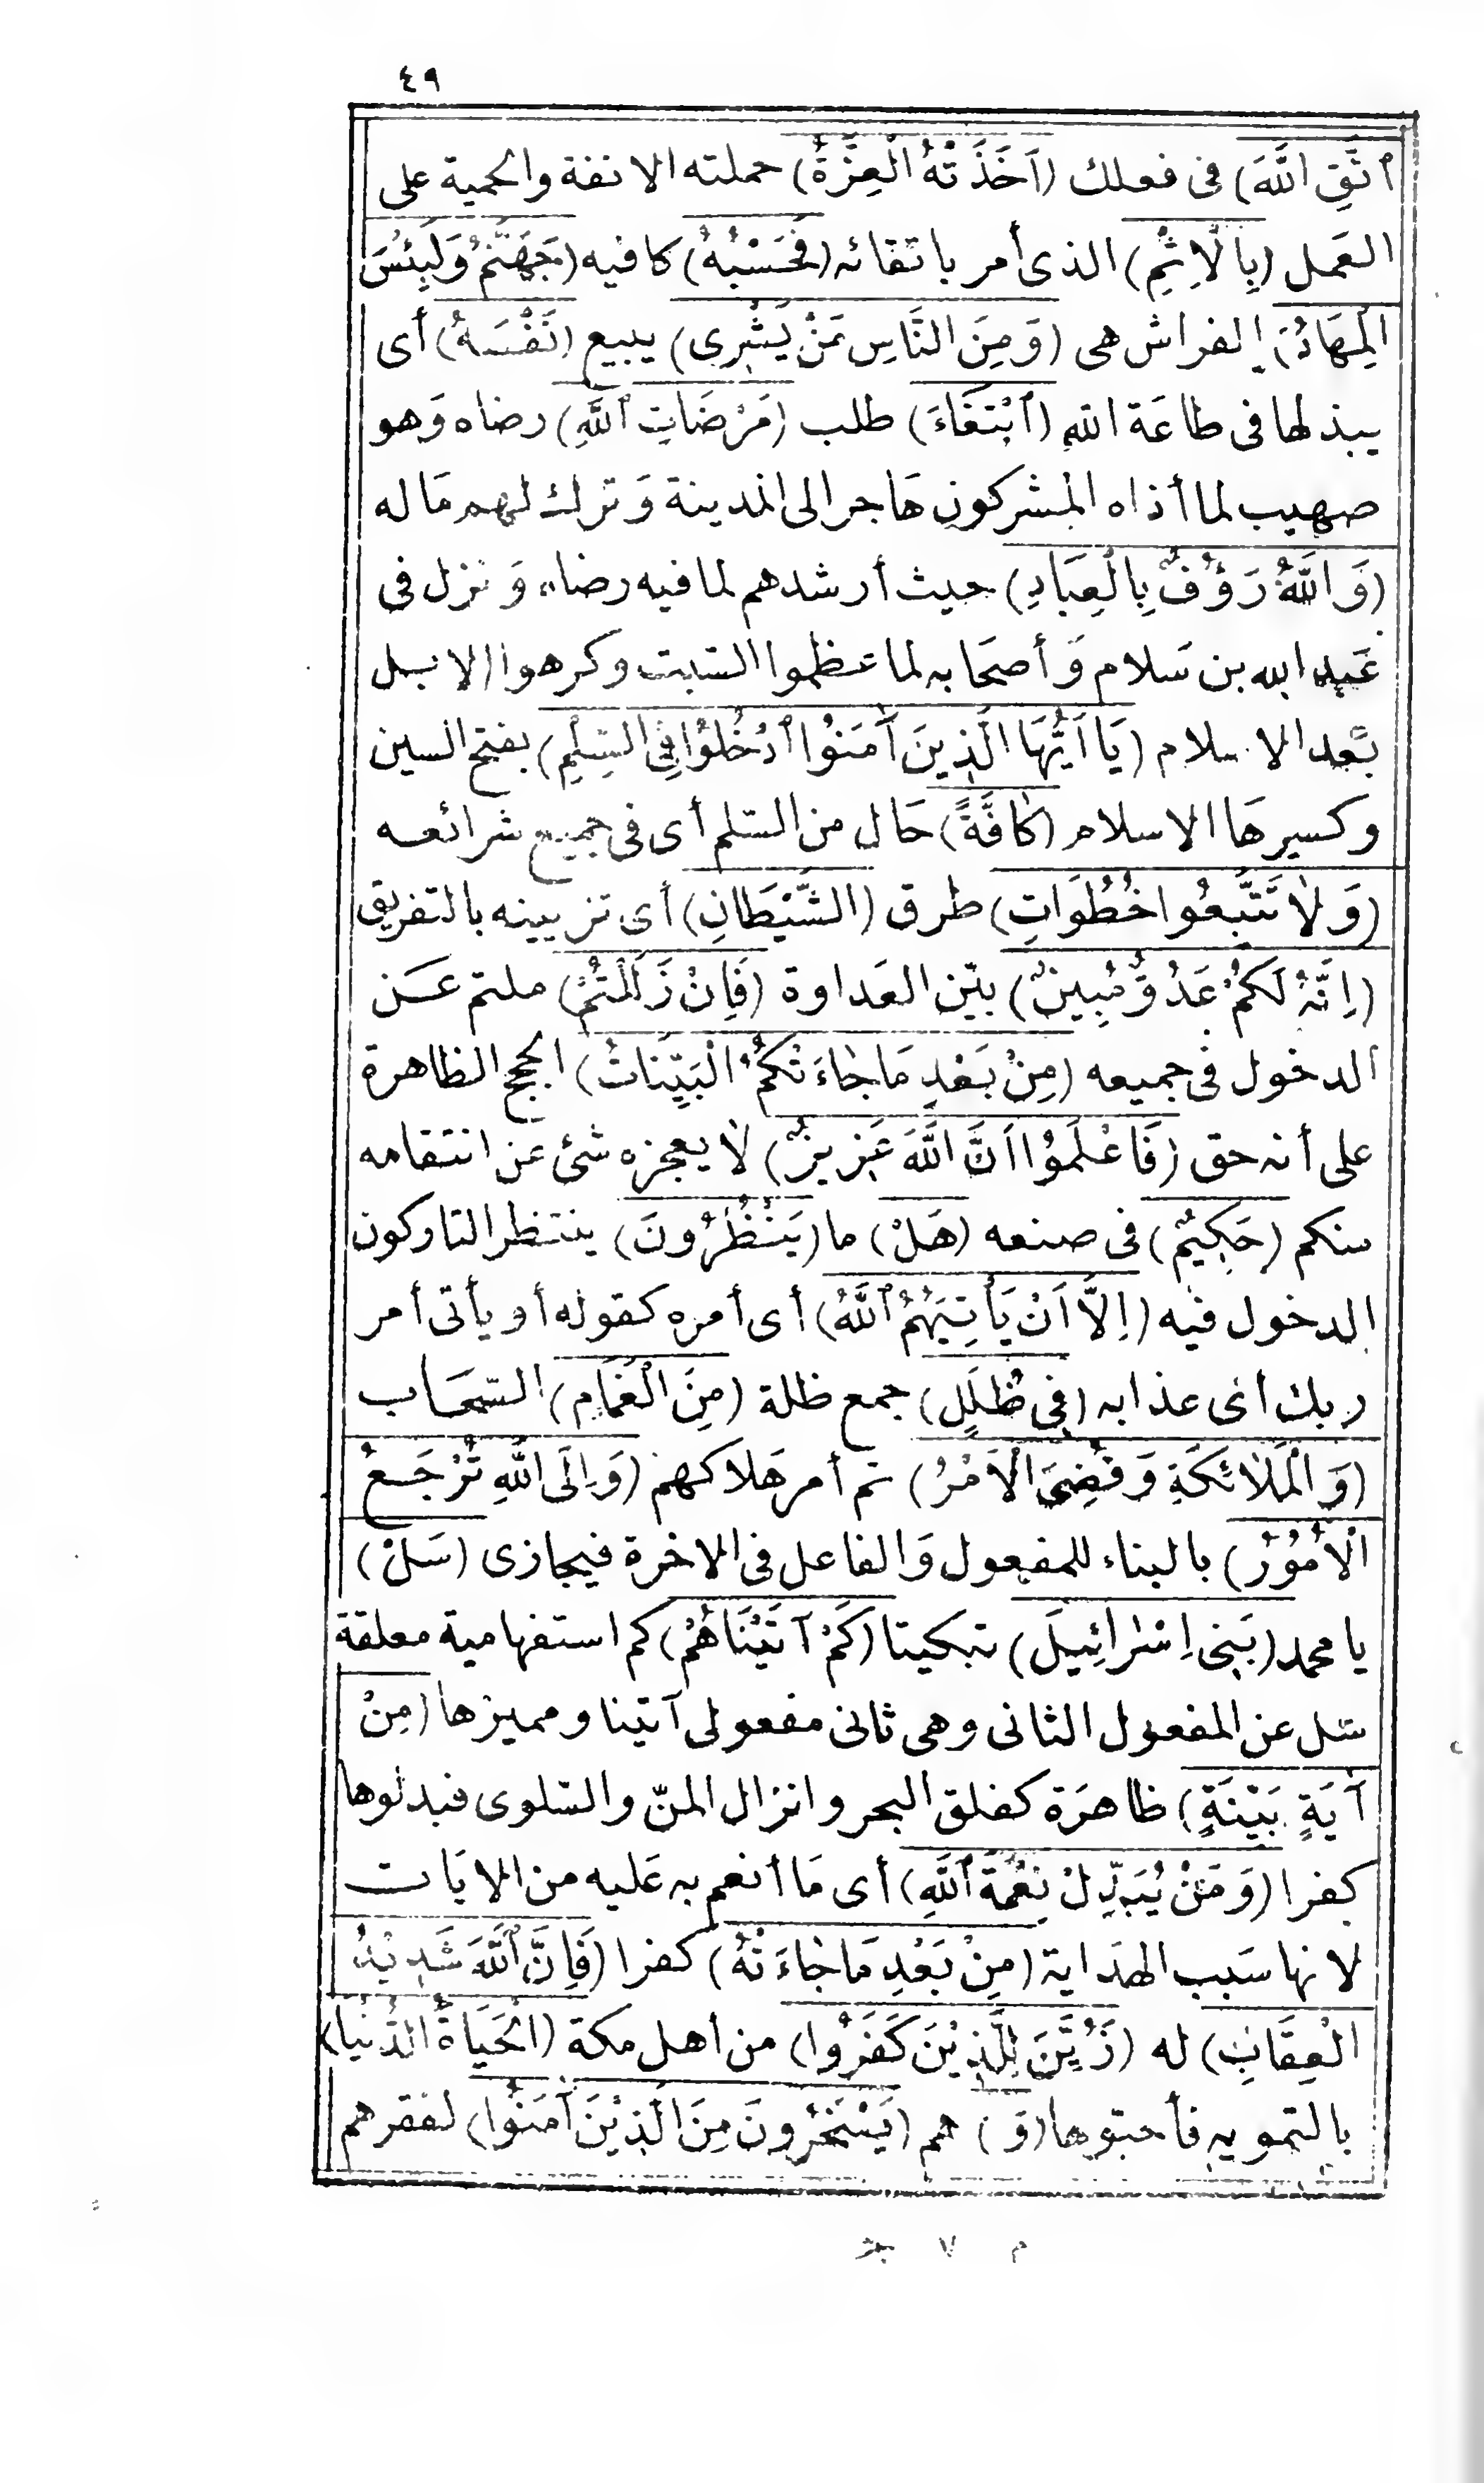 ٤٩
اتَّقِ اللَّهَ) فى فعلك (اَخَذَتْهُ الْعِزَّةُ) حملته الانفة والحمية على
العَمل (بِالْاِثْمِ) الذى أمر باتقائه (فَحَسْبُهُ) كافيه (جَهَنَّمُ وَلَبِئْسَ
الْمِهَادُ) الفراش هى (وَمِنَ النَّاسِ مَنْ يَشْرِى) يبيع (نَفْسَهُ) أى
يبذلها فى طاعَة الله (ٱبْتِغَاءَ) طلب (مَرْضَاتِ ٱللَّهِ) رضاه وَهو
صهيب لما أذاه المشركون هَاجر الى المدينة وَترك لهم مَاله
(وَاللَّهُ رَؤُفٌ بِالْعِبَادِ) حيث أرشدهم لما فيه رضاه وَنزل فى
عَبد الله بن سَلام وَأصحَابه لما عظموا السبت وكرهوا الابل
بَعد الاسلام (يَا اَيُّهَا الَّذِينَ آمَنُوا ٱدْخُلُوا فِى السِّلْمِ) بفتح السين
وكسرهَا الاسلام (كَافَّةً) حَال من السّلم أى فى جميع شرائعه
(وَلَا تَتَّبِعُوا خُطُوَاتِ) طرق (الشَّيْطَانِ) أى تزيينه بالتفريق
(اِنَّهُ لَكُمْ عَدُوٌّ مُبِينٌ) بيّن العَداوة (فَاِنْ زَلَلْتُمْ) ملتم عَن
الدخول فى جميعه (مِنْ بَعْدِ مَا جَاءَتْكُمُ الْبَيِّنَاتُ) الحجج الظاهرة
على أنه حق (فَاعْلَمُوا اَنَّ اللَّهَ عَزِيزٌ) لا يعجزه شئ عن انتقامه
منكم (حَكِيمٌ) فى صنعه (هَلْ) ما (يَنْظُرُونَ) ينتظر التاركون
الدخول فيه (اِلَّا اَنْ يَأْتِيَهُمُ ٱللَّهُ) أى أمره كقوله أو يأتى أمر
ربك أى عذابه (فِى ظُلَلٍ) جمع ظلة (مِنَ الْغَمَامِ) السّحَاب
(وَالْمَلَائِكَةِ وَقُضِىَ الْاَمْرُ) تم أمر هَلاكهم (وَاِلَى اللَّهِ تُرْجَعُ
الْاُمُوْرُ) بالبناء للمفعول وَالفاعل فى الاخرة فيجازى (سَلْ)
يا محمد (بَنِى اِسْرَائِيلَ) تبكيتا (كَمْ آتَيْنَاهُمْ) كم استفهامية معلقة
سَل عن المفعول الثانى وهى ثانى مفعولى آتينا ومميزها (مِنْ
آيَةٍ بَيِّنَةٍ) ظاهرَة كفلق البحر وانزال المنّ والسّلوى فبدلوها
كفرا (وَمَنْ يُبَدِّلْ نِعْمَةَ ٱللَّهِ) أى مَا أنعم به عَليه من الايَات
لانها سَبب الهدَاية (مِنْ بَعْدِ مَا جَاءَتْهُ) كفرا (فَاِنَّ ٱللَّهَ شَدِيْدُ
الْعِقَابِ) له (زُيِّنَ لِلَّذِيْنَ كَفَرُوا) من أهل مكة (الْحَيَاةُ الدُّنْيَا)
بالتمويه فأحبّوها (وَ) هم (يَسْخَرُونَ مِنَ الَّذِيْنَ آمَنُوا) لفقرهم
م ٧ جز